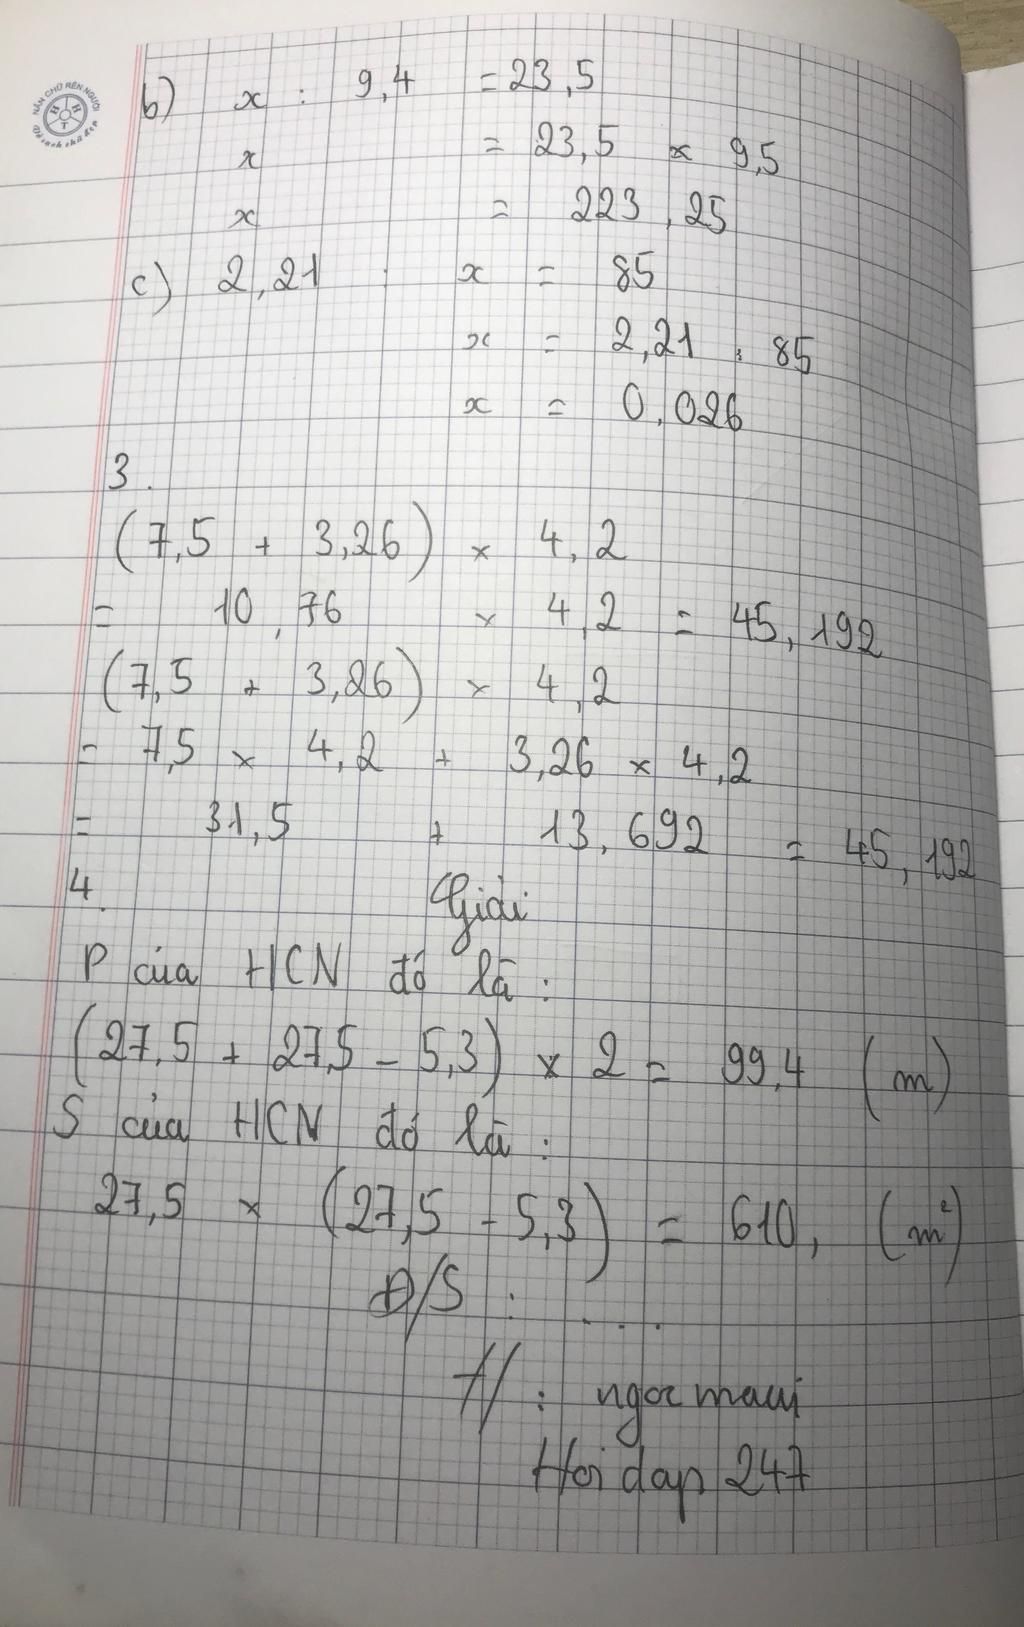 NẮN CHỮ RÈN NGƯỜI
H H T
b) x : 9,4 = 23,5
x = 23,5 x 9,5
x = 223,25
c) 2,21 : x = 85
x = 2,21 : 85
x = 0,026
3.
(7,5 + 3,26) x 4,2
= 10,76 x 4,2 = 45,192
(7,5 + 3,26) x 4,2
= 7,5 x 4,2 + 3,26 x 4,2
= 31,5 + 13,692 = 45,192
4. Giải
P của HCN đó là :
(27,5 + 27,5 - 5,3) x 2 = 99,4 (m)
S của HCN đó là :
27,5 x (27,5 - 5,3) = 610, (m²)
Đ/S : ....
: ngocmaui
Hoi dap 247